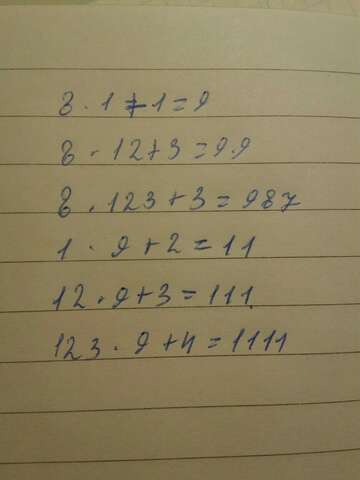 8 · 1 + 1 = 9
8 · 12 + 3 = 99
8 · 123 + 3 = 987
1 · 9 + 2 = 11
12 · 9 + 3 = 111
123 · 9 + 4 = 1111